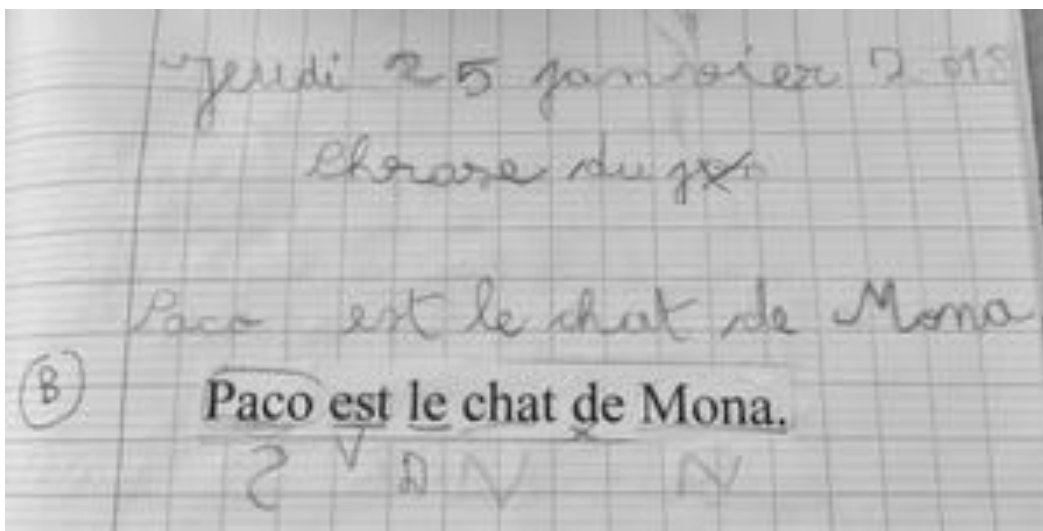 Jeudi 25 janvier 2018
Phrase du
Paco est le chat de Mona
B
Paco est le chat de Mona.
V D N N